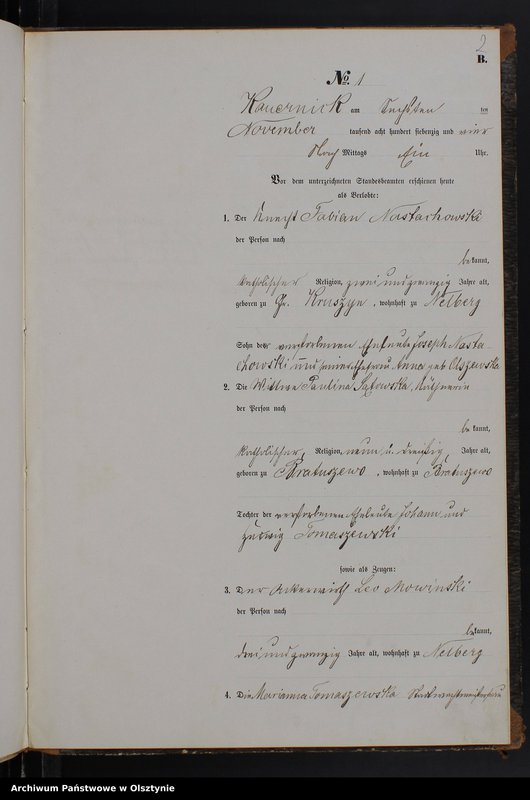 2
B.
No. 1
Kauernick am Sechsten ten
November tausend acht hundert siebenzig und vier
Nach Mittags Ein Uhr.
Vor dem unterzeichneten Standesbeamten erschienen heute
als Verlobte:
1. Der Knecht Fabian Nastachowski
der Person nach
bekannt,
katholischer Religion, zwei und zwanzig Jahre alt,
geboren zu Gr. Kruszyn, wohnhaft zu Nelberg
Sohn der verstorbenen Eheleute Joseph Nasta-
chowski und Anna geb Olszewska
2. Die Wittwe Paulina Käthnerin
der Person nach
bekannt,
katholischer Religion, neun u. dreißig Jahre alt,
geboren zu Bratuszewo, wohnhaft zu Bratuszewo
Tochter der verstorbenen Eheleute Johann und
Hedwig Tomaszewski
sowie als Zeugen:
3. Der Ackerwirth Leo Mowinski
der Person nach
bekannt,
drei und zwanzig Jahre alt, wohnhaft zu Nelberg
4. Die Marianna Tomaszewska
Archiwum Państwowe w Olsztynie